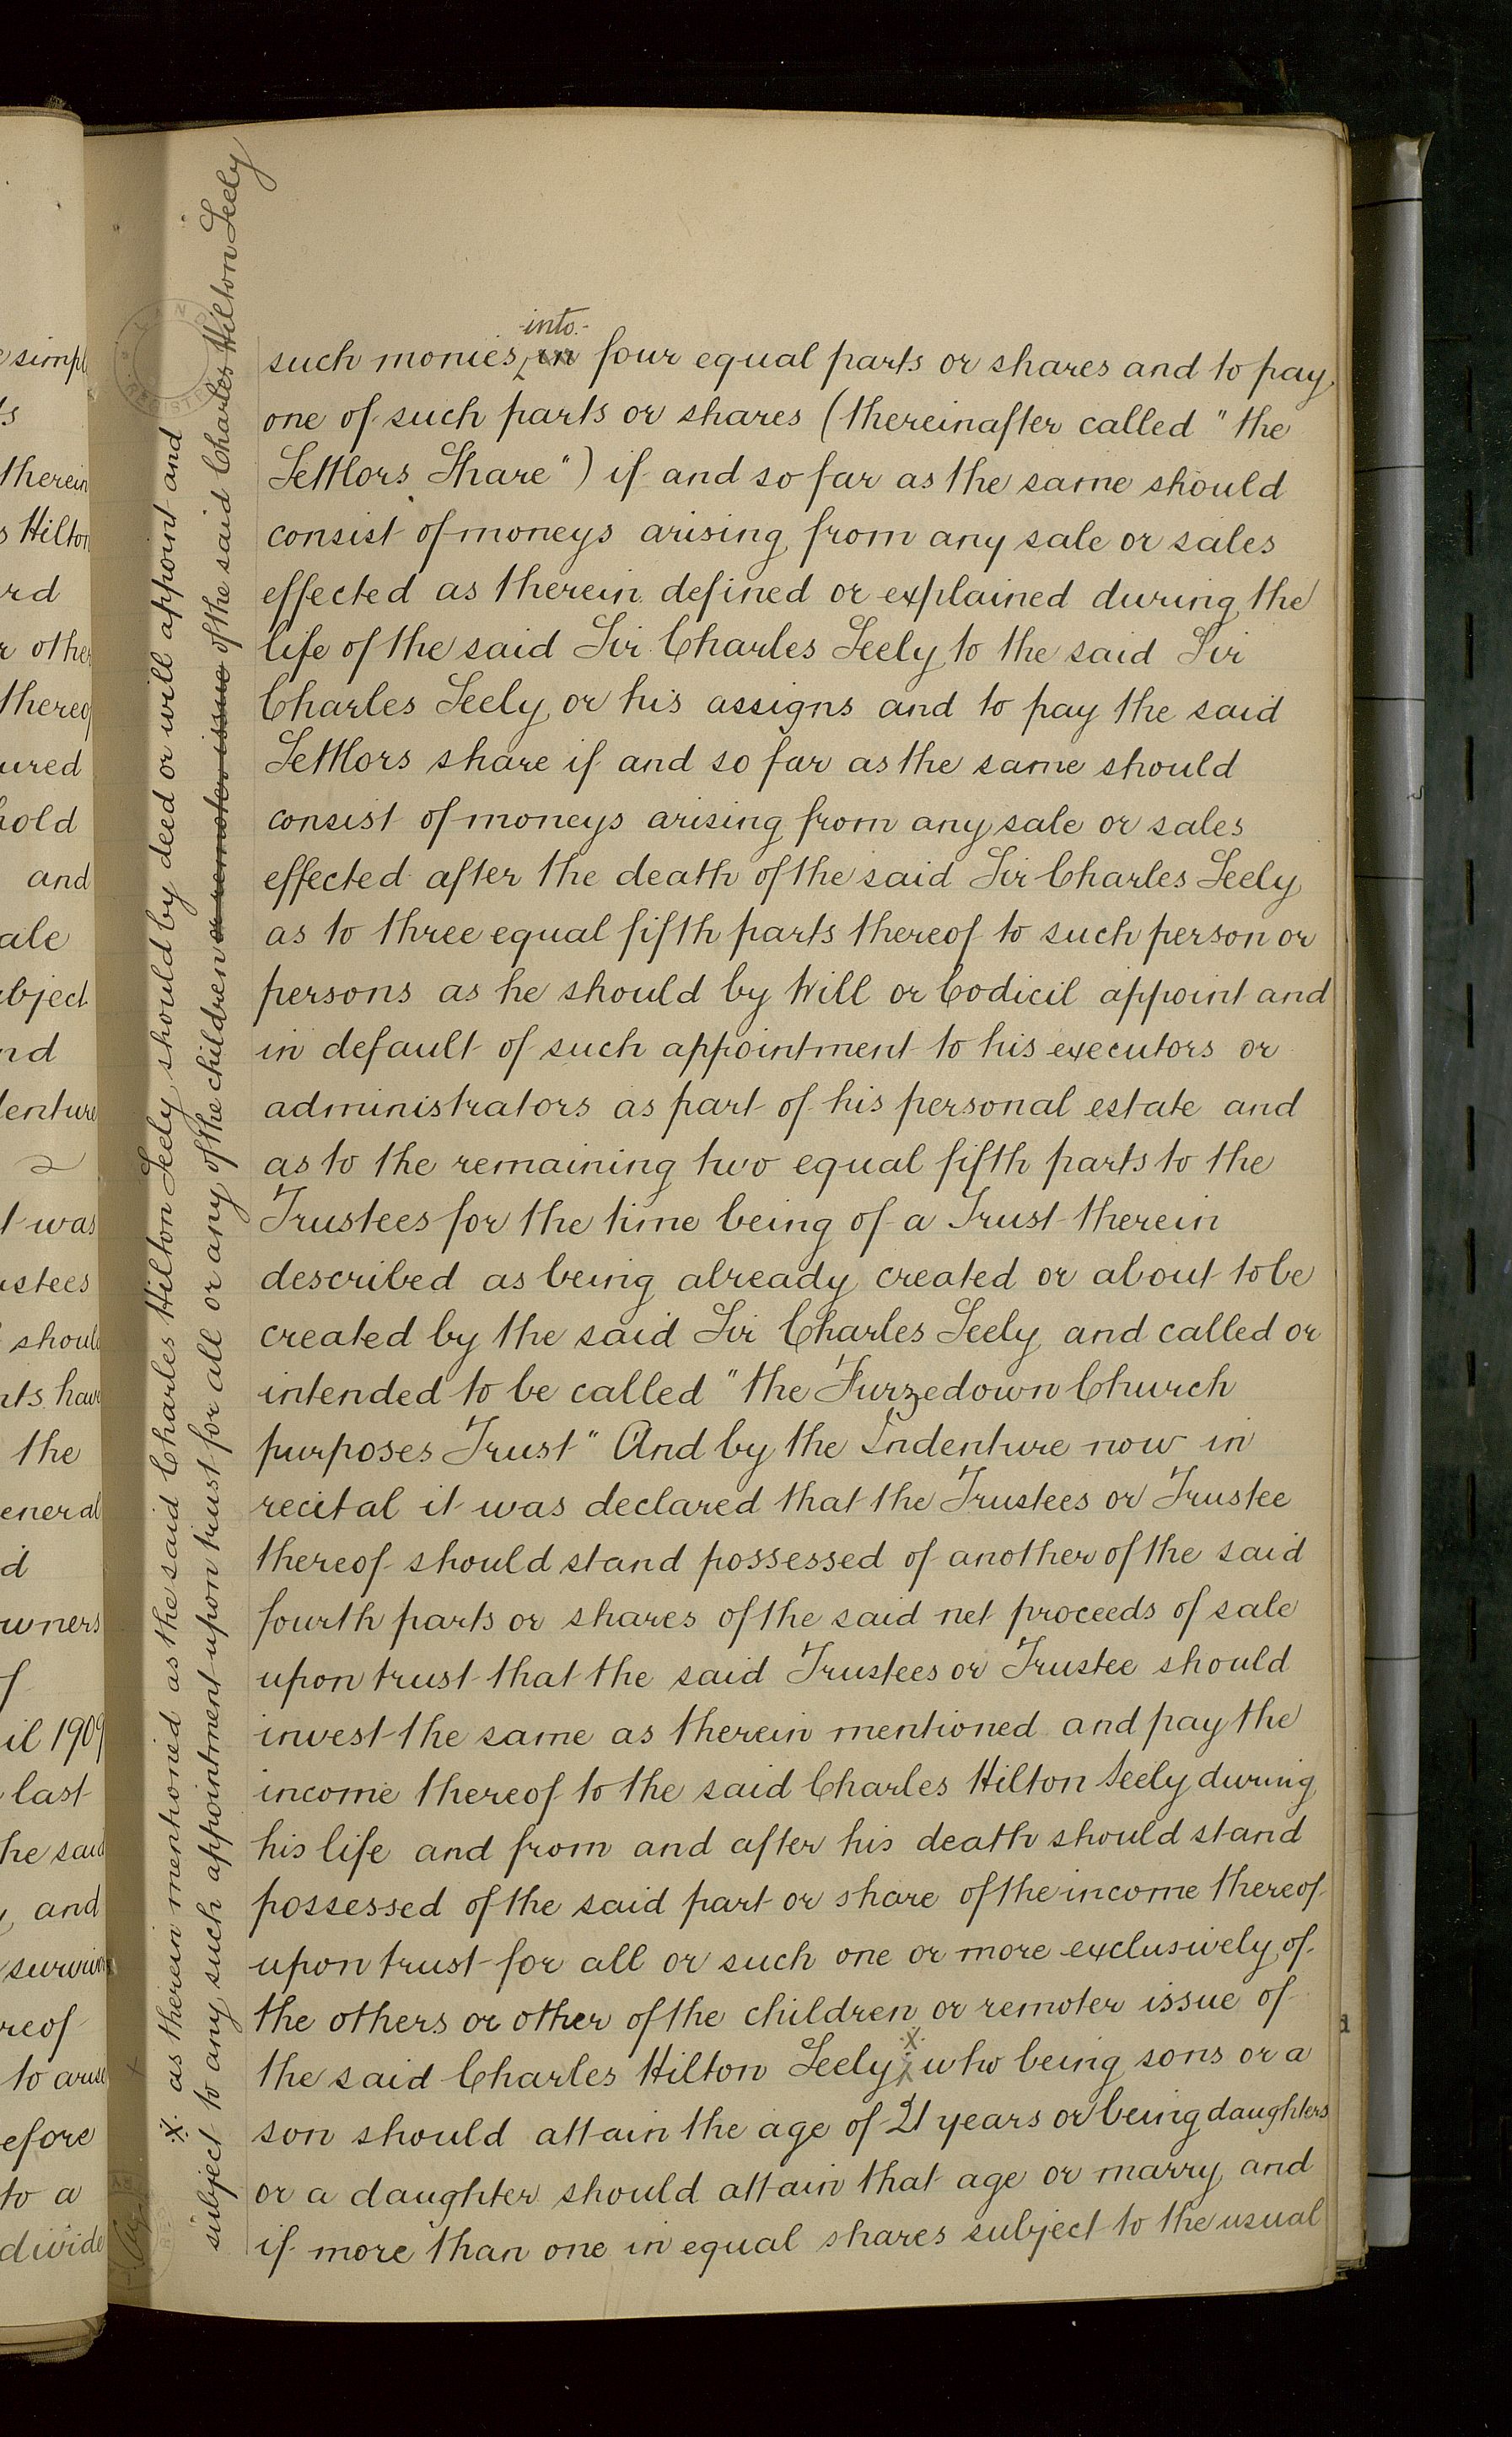 e simpl
ts
therein
s Hilton
rd
r other
thereof
ured
hold
and
ale
bject
nd
denture
t was
ustees
should
nts have
the
eneral
d
owners
f
il 1909
last
he said
, and
surviv
reof
to arise
efore
to a
divide
X as therein mentioned as the said Charles Hilton Seely should by deed or will appoint and
subject to any such appointment upon trust for all or any of the children or remoter issue of the said Charles Hilton Seely
LAND REGISTER
-into-
such monies, in four equal parts or shares and to pay
one of such parts or shares (thereinafter called "the
Settlors Share") if and so far as the same should
consist of moneys arising from any sale or sales
effected as therein defined or explained during the
life of the said Sir Charles Seely to the said Sir
Charles Seely or his assigns and to pay the said
Settlors share if and so far as the same should
consist of moneys arising from any sale or sales
effected after the death of the said Sir Charles Seely
as to three equal fifth parts thereof to such person or
persons as he should by Will or Codicil appoint and
in default of such appointment to his executors or
administrators as part of his personal estate and
as to the remaining two equal fifth parts to the
Trustees for the time being of a Trust therein
described as being already created or about to be
created by the said Sir Charles Seely and called or
intended to be called "the Furzedown Church
purposes Trust" And by the Indenture now in
recital it was declared that the Trustees or Trustee
thereof should stand possessed of another of the said
fourth parts or shares of the said net proceeds of sale
upon trust that the said Trustees or Trustee should
invest the same as therein mentioned and pay the
income thereof to the said Charles Hilton Seely during
his life and from and after his death should stand
possessed of the said part or share of the income thereof
upon trust for all or such one or more exclusively of
the others or other of the children or remoter issue of
the said Charles Hilton Seely X who being sons or a
son should attain the age of 21 years or being daughters
or a daughter should attain that age or marry and
if more than one in equal shares subject to the usual